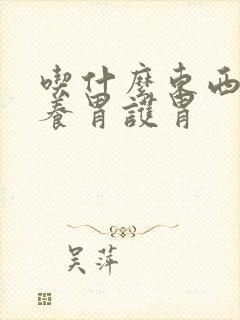 喫什麼東西
養胃護胃
吴萍